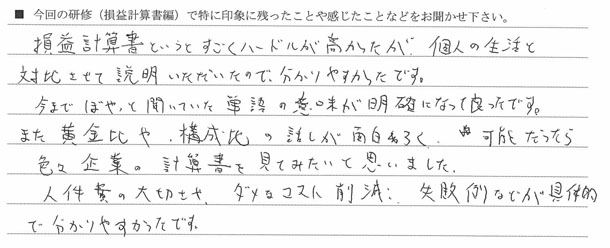 ■ 今回の研修（損益計算書編）で特に印象に残ったことや感じたことなどをお聞かせ下さい。
損益計算書というとすごくハードルが高かったが、個人の生活と
対比させて説明いただいたので、分かりやすかったです。
今までぼやっと聞いていた単語の意味が明確になって良かったです。
また黄金比や、構成比の話しが面白く、可能だったら
色々企業の計算書を見てみたいと思いました。
人件費の大切さや、ダメなコスト削減、失敗例などが具体的
で分かりやすかったです。